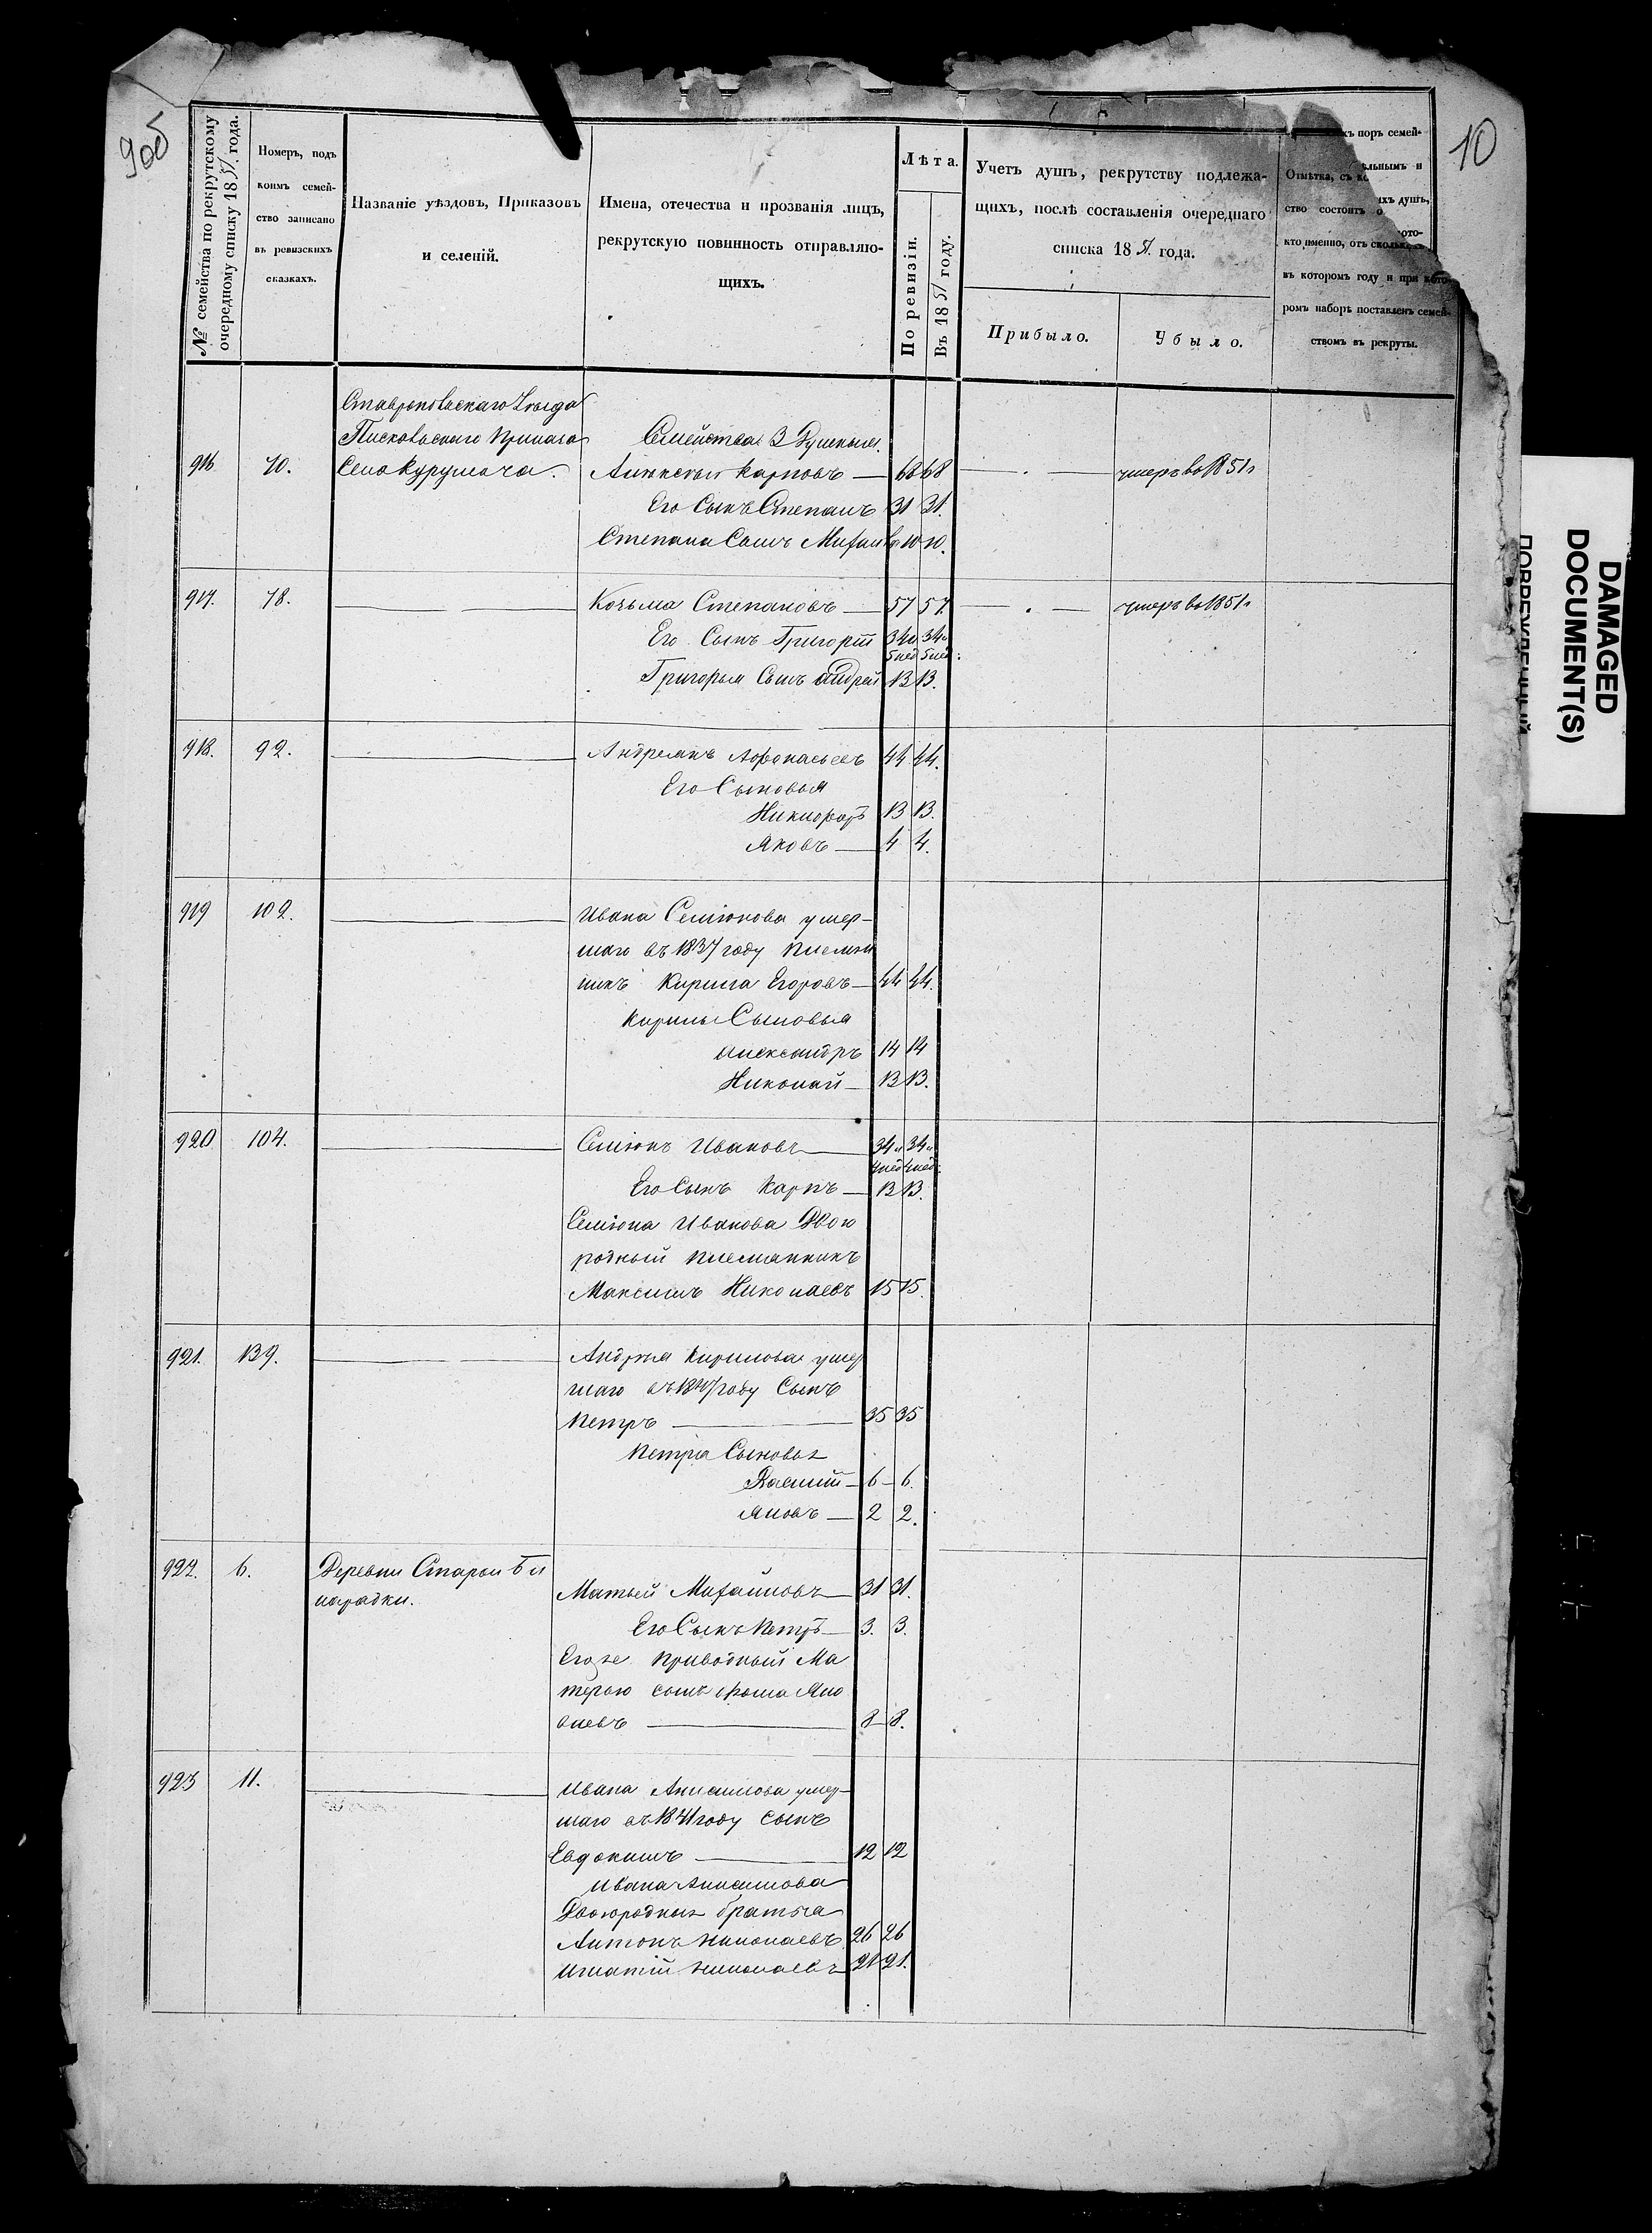 906
10
№ семейства по рекрутскому
очередному списку 1851 года.
Номеръ, подъ
коимъ семей-
ство записано
въ ревизскихъ
сказкахъ.
Названіе уѣздовъ, Приказовъ
и селеній.
Имена, отечества и прозванія лицъ,
рекрутскую повинность отправляю-
щихъ.
Лѣта.
По ревизіи.
Въ 1851 году.
Учетъ душъ, рекрутству подлежа-
щихъ, послѣ составленія очереднаго
списка 1851 года.
Прибыло.
Убыло.
хъ поръ семей-
ельнымъ и
Отмѣтка, съ ко
ихъ душъ,
ство состоитъ о
ото-
кто именно, отъ сколькихъ
въ которомъ году и при кото-
ромъ наборѣ поставленъ семей-
ствомъ въ рекруты.
Ставропольскаго Уѣзда
Писковскаго Приказа
Семейства 3 Душныя
916 70. Села Курумоча. Алексѣй Карповъ — 68 68 — . — умеръ въ 1851 г
Его Сынъ Степанъ 31 31.
Степана Сынъ Михаилъ 10 10.
917. 78. Козьма Степановъ — 57 57. — . — умеръ въ 1851 г
Его Сынъ Григорій 34 и 34 и
5 нед 5 нед:
Григорья Сынъ Андрей 13 13.
918. 92. Андреянъ Афонасьевъ 44 44.
Его Сыновья
Никифоръ 13 13.
Яковъ — 4 4.
919 102. Ивана Семіонова умер-
шаго въ 1837 году племян
никъ Кирила Егоровъ — 44 44.
Кирилы Сыновья
Александръ 14 14
Николай — 13 13.
920 104. Семіонъ Ивановъ — 34 и 34 и
4 нед 4 нед:
Его Сынъ Карпъ — 13 13.
Семіона Иванова Двою
родный племянникъ
Максимъ Николаевъ 15 15.
921. 139. Андрея Кирилова умер
шаго въ году Сынъ
Петръ — 35 35
Петра Сыновья
Василій — 6 — 6.
Яковъ — 2 2.
922. 6. Деревни Старой Би
нарадки.
Матвей Михайловъ — 31 31.
Его Сынъ Петръ — 3. 3.
Егоже приводный Ма
терью сынъ Фома Яко
влевъ — 8 — 8.
923 11. Ивана Анисимова умер-
шаго въ 1841 году Сынъ
Евдокимъ — 12 12
Ивана Анисимова
Двоюродныя братья
Антонъ Николаевъ 26 26
Игнатій Николаевъ 21 21.
DAMAGED
DOCUMENT(S)
ПОВРЕЖДЕННЫЙ